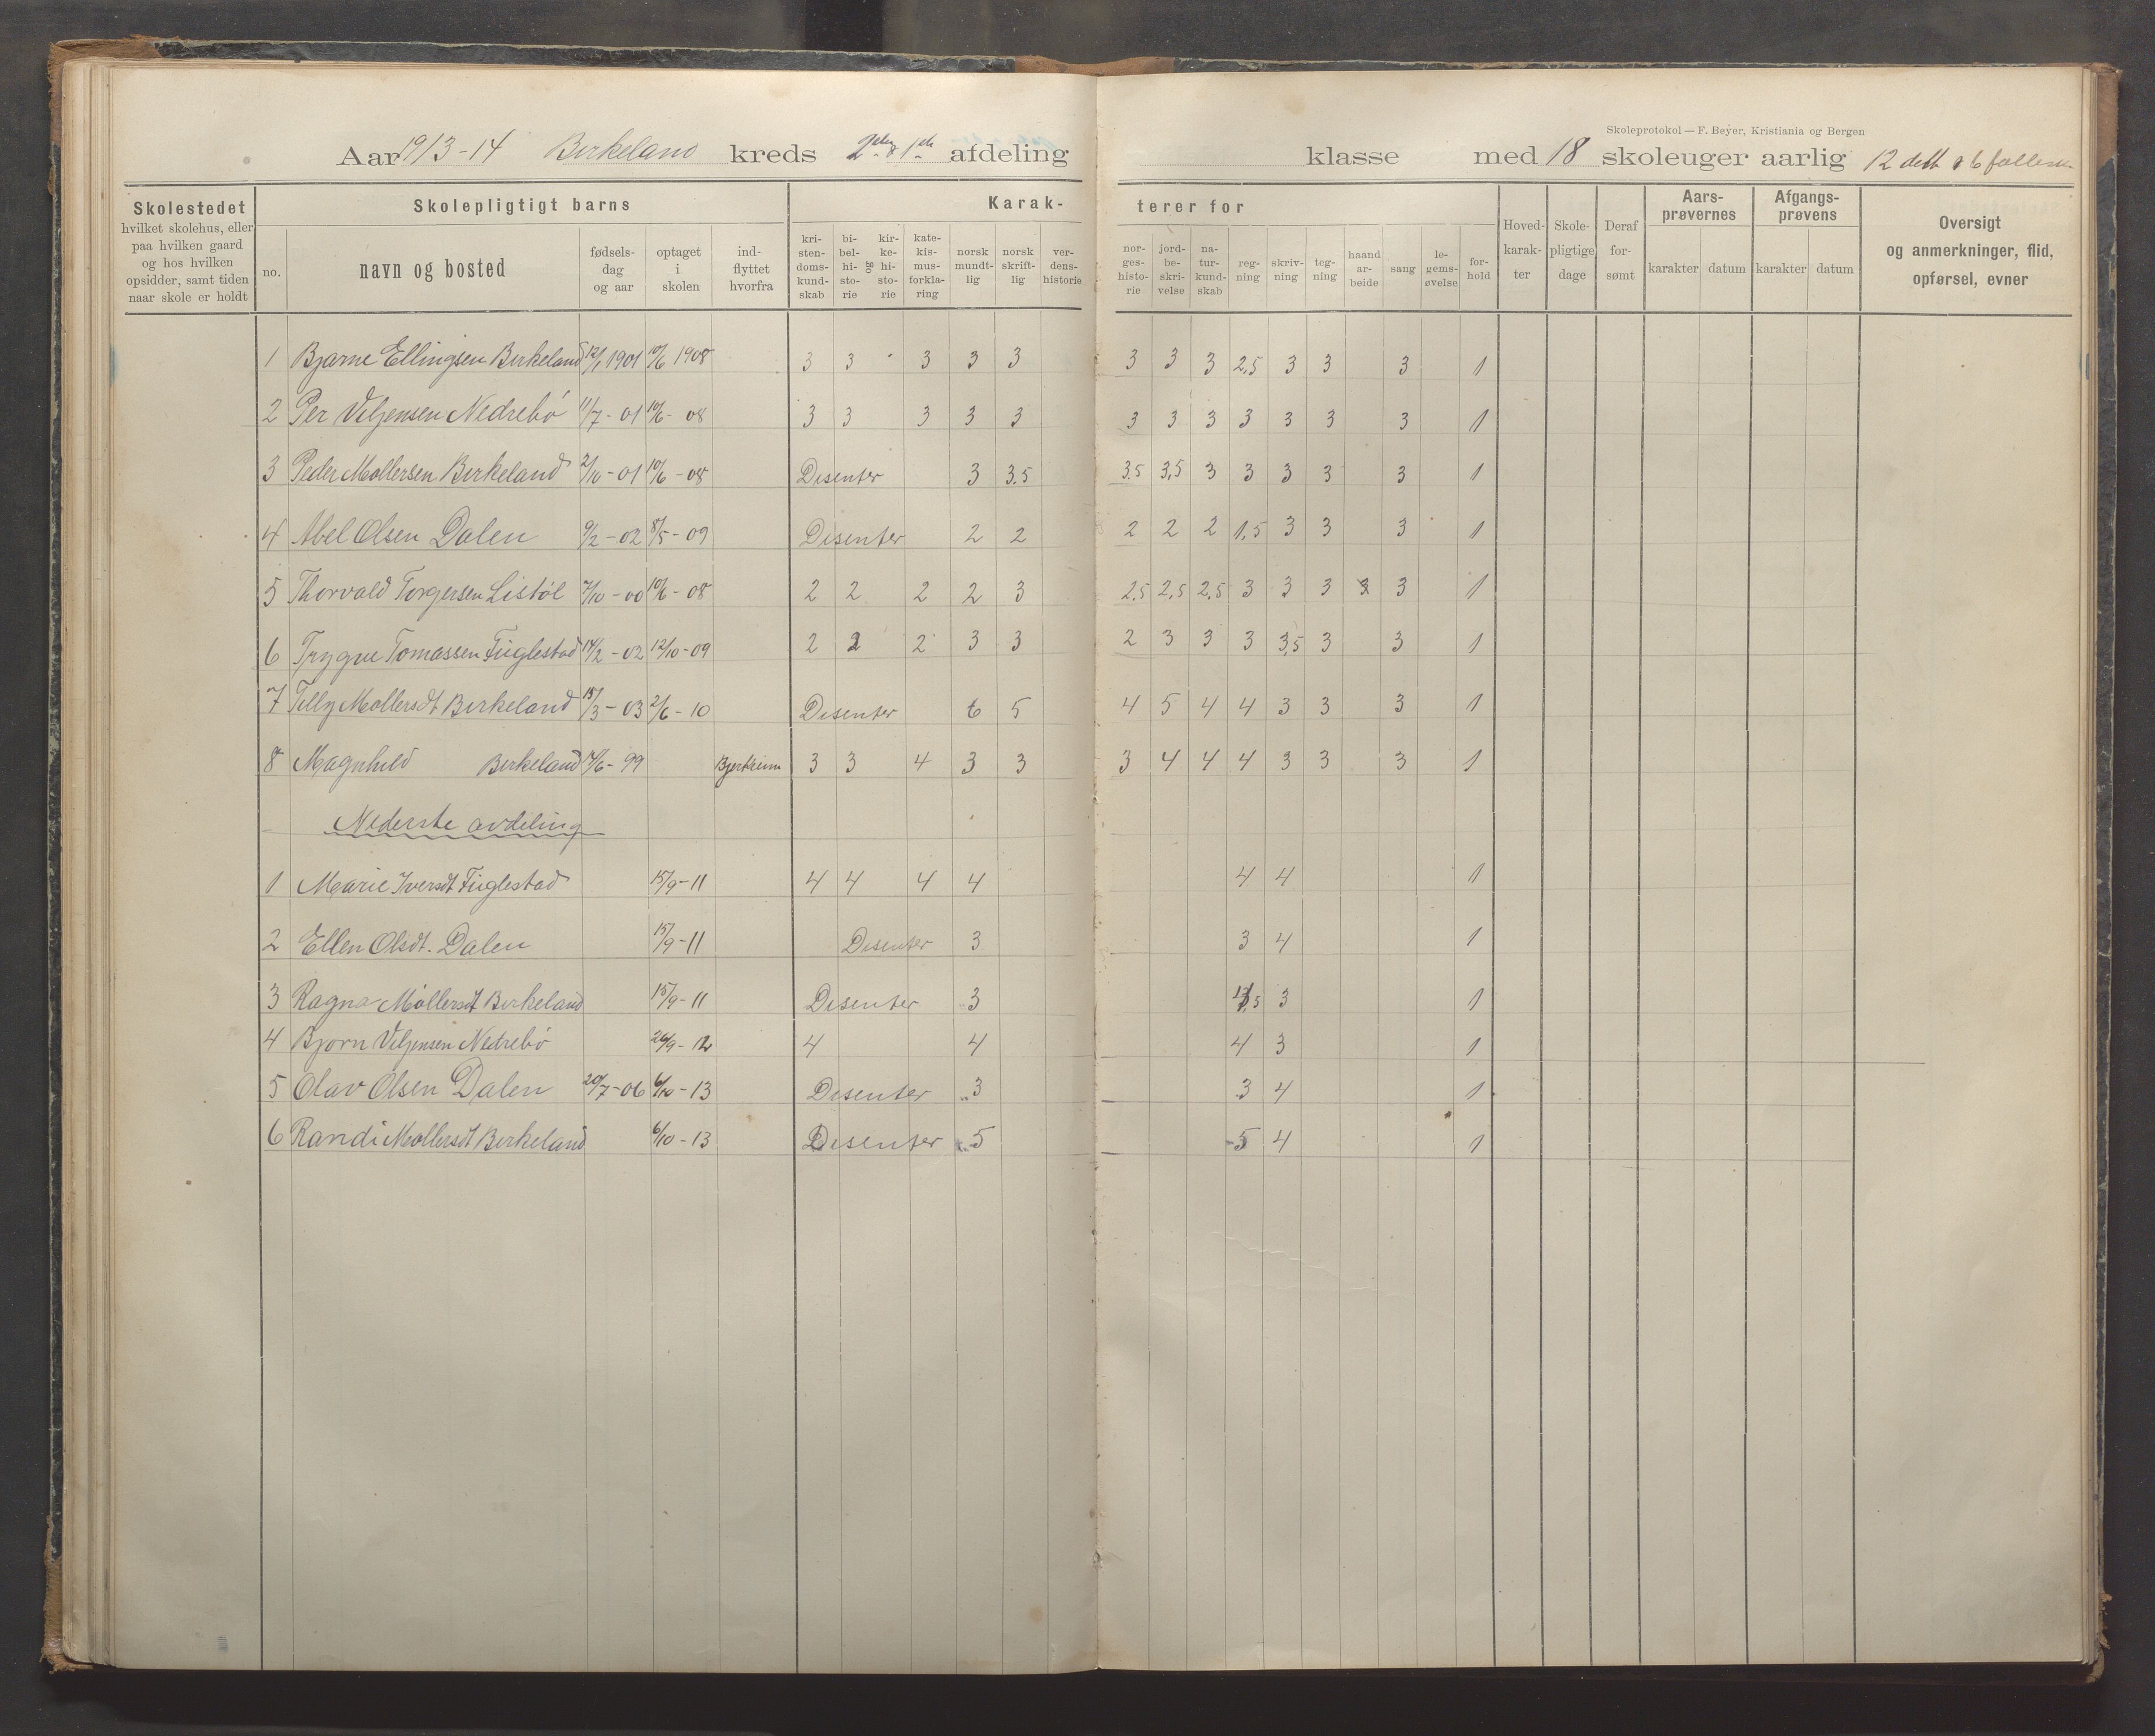 Skoleprotokol — F. Beyer, Kristiania og Bergen
Aar 1913-14 Birkeland kreds 2den & 1ste afdeling klasse med 18 skoleuger aarlig 12 delt 6 felles
Skolestedet
hvilket skolehus, eller
paa hvilken gaard
og hos hvilken
opsidder, samt tiden
naar skole er holdt
Skolepligtigt barns
no.
navn og bosted
fødsels-
dag
og aar
optaget
i
skolen
ind-
flyttet
hvorfra
Karak-
terer for
kri-
sten-
doms-
kund-
skab
bi-
bel-
hi-
sto-
rie
og
kir-
ke-
hi-
sto-
rie
kate-
kis-
mus-
forkla-
ring
norsk
mundt-
lig
norsk
skrift-
lig
ver-
dens-
historie
nor-
ges-
histo-
rie
jord-
be-
skri-
velse
na-
tur-
kund-
skab
reg-
ning
skriv-
ning
teg-
ning
haand
ar-
beide
sang
le-
gems-
øvelse
for-
hold
Hoved-
karak-
ter
Skole-
pligtige
dage
Deraf
for-
sømt
Aars-
prøvernes
karakter datum
Afgangs-
prøvens
karakter datum
Oversigt
og anmerkninger, flid,
opførsel, evner
1 Bjarne Ellingsen Birkeland 12/1 1901 10/6 1908 3 3 3 3 3 3 3 3 2,5 3 3 3 1
2 Per Veljensen Nedrebó 11/7 - 01 10/6 - 08 3 3 3 3 3 3 3 3 3 3 3 3 1
3 Peder Mollersen Birkeland 2/10 - 01 10/6 - 08 Disenter 3 3.5 3.5 3,5 3 3 3 3 3 1
4 Abel Olsen Dalen 9/2 - 02 8/5 - 09 Disenter 2 2 2 2 2 1,5 3 3 3 1
5 Thorvald Torgersen Listöl 7/10 - 00 10/6 - 08 2 2 2 2 3 2,5 2,5 2,5 3 3 3 3 3 1
6 Trygve Tomassen Fuglestad 14/2 - 02 12/10 - 09 2 2 2 3 3 2 3 3 3 3,5 3 3 1
7 Tilly Mollersdt Birkeland 15/3 - 03 2/6 - 10 Disenter 6 5 4 5 4 4 3 3 3 1
8 Magnhild Birkeland 14/6 - 99 Bjerkreim 3 3 4 3 3 3 4 4 4 3 3 3 1
Nederste avdeling
1 Marie Iversdt Fuglestad 15/9 - 11 4 4 4 4 4 4 1
2 Ellen Olsdt. Dalen 15/9 - 11 Disenter 3 3 4 1
3 Ragna Mollersdt Birkeland 15/9 - 11 Disenter 3 3,5 3 1
4 Bjorn Veljensen Nedrebó 26/9 - 12 4 4 4 3 1
5 Olav Olsen Dalen 20/7 - 06 6/10 - 13 Disenter 3 3 4 1
6 Randi Mollersdt Birkeland 6/10 - 13 Disenter 5 5 4 1